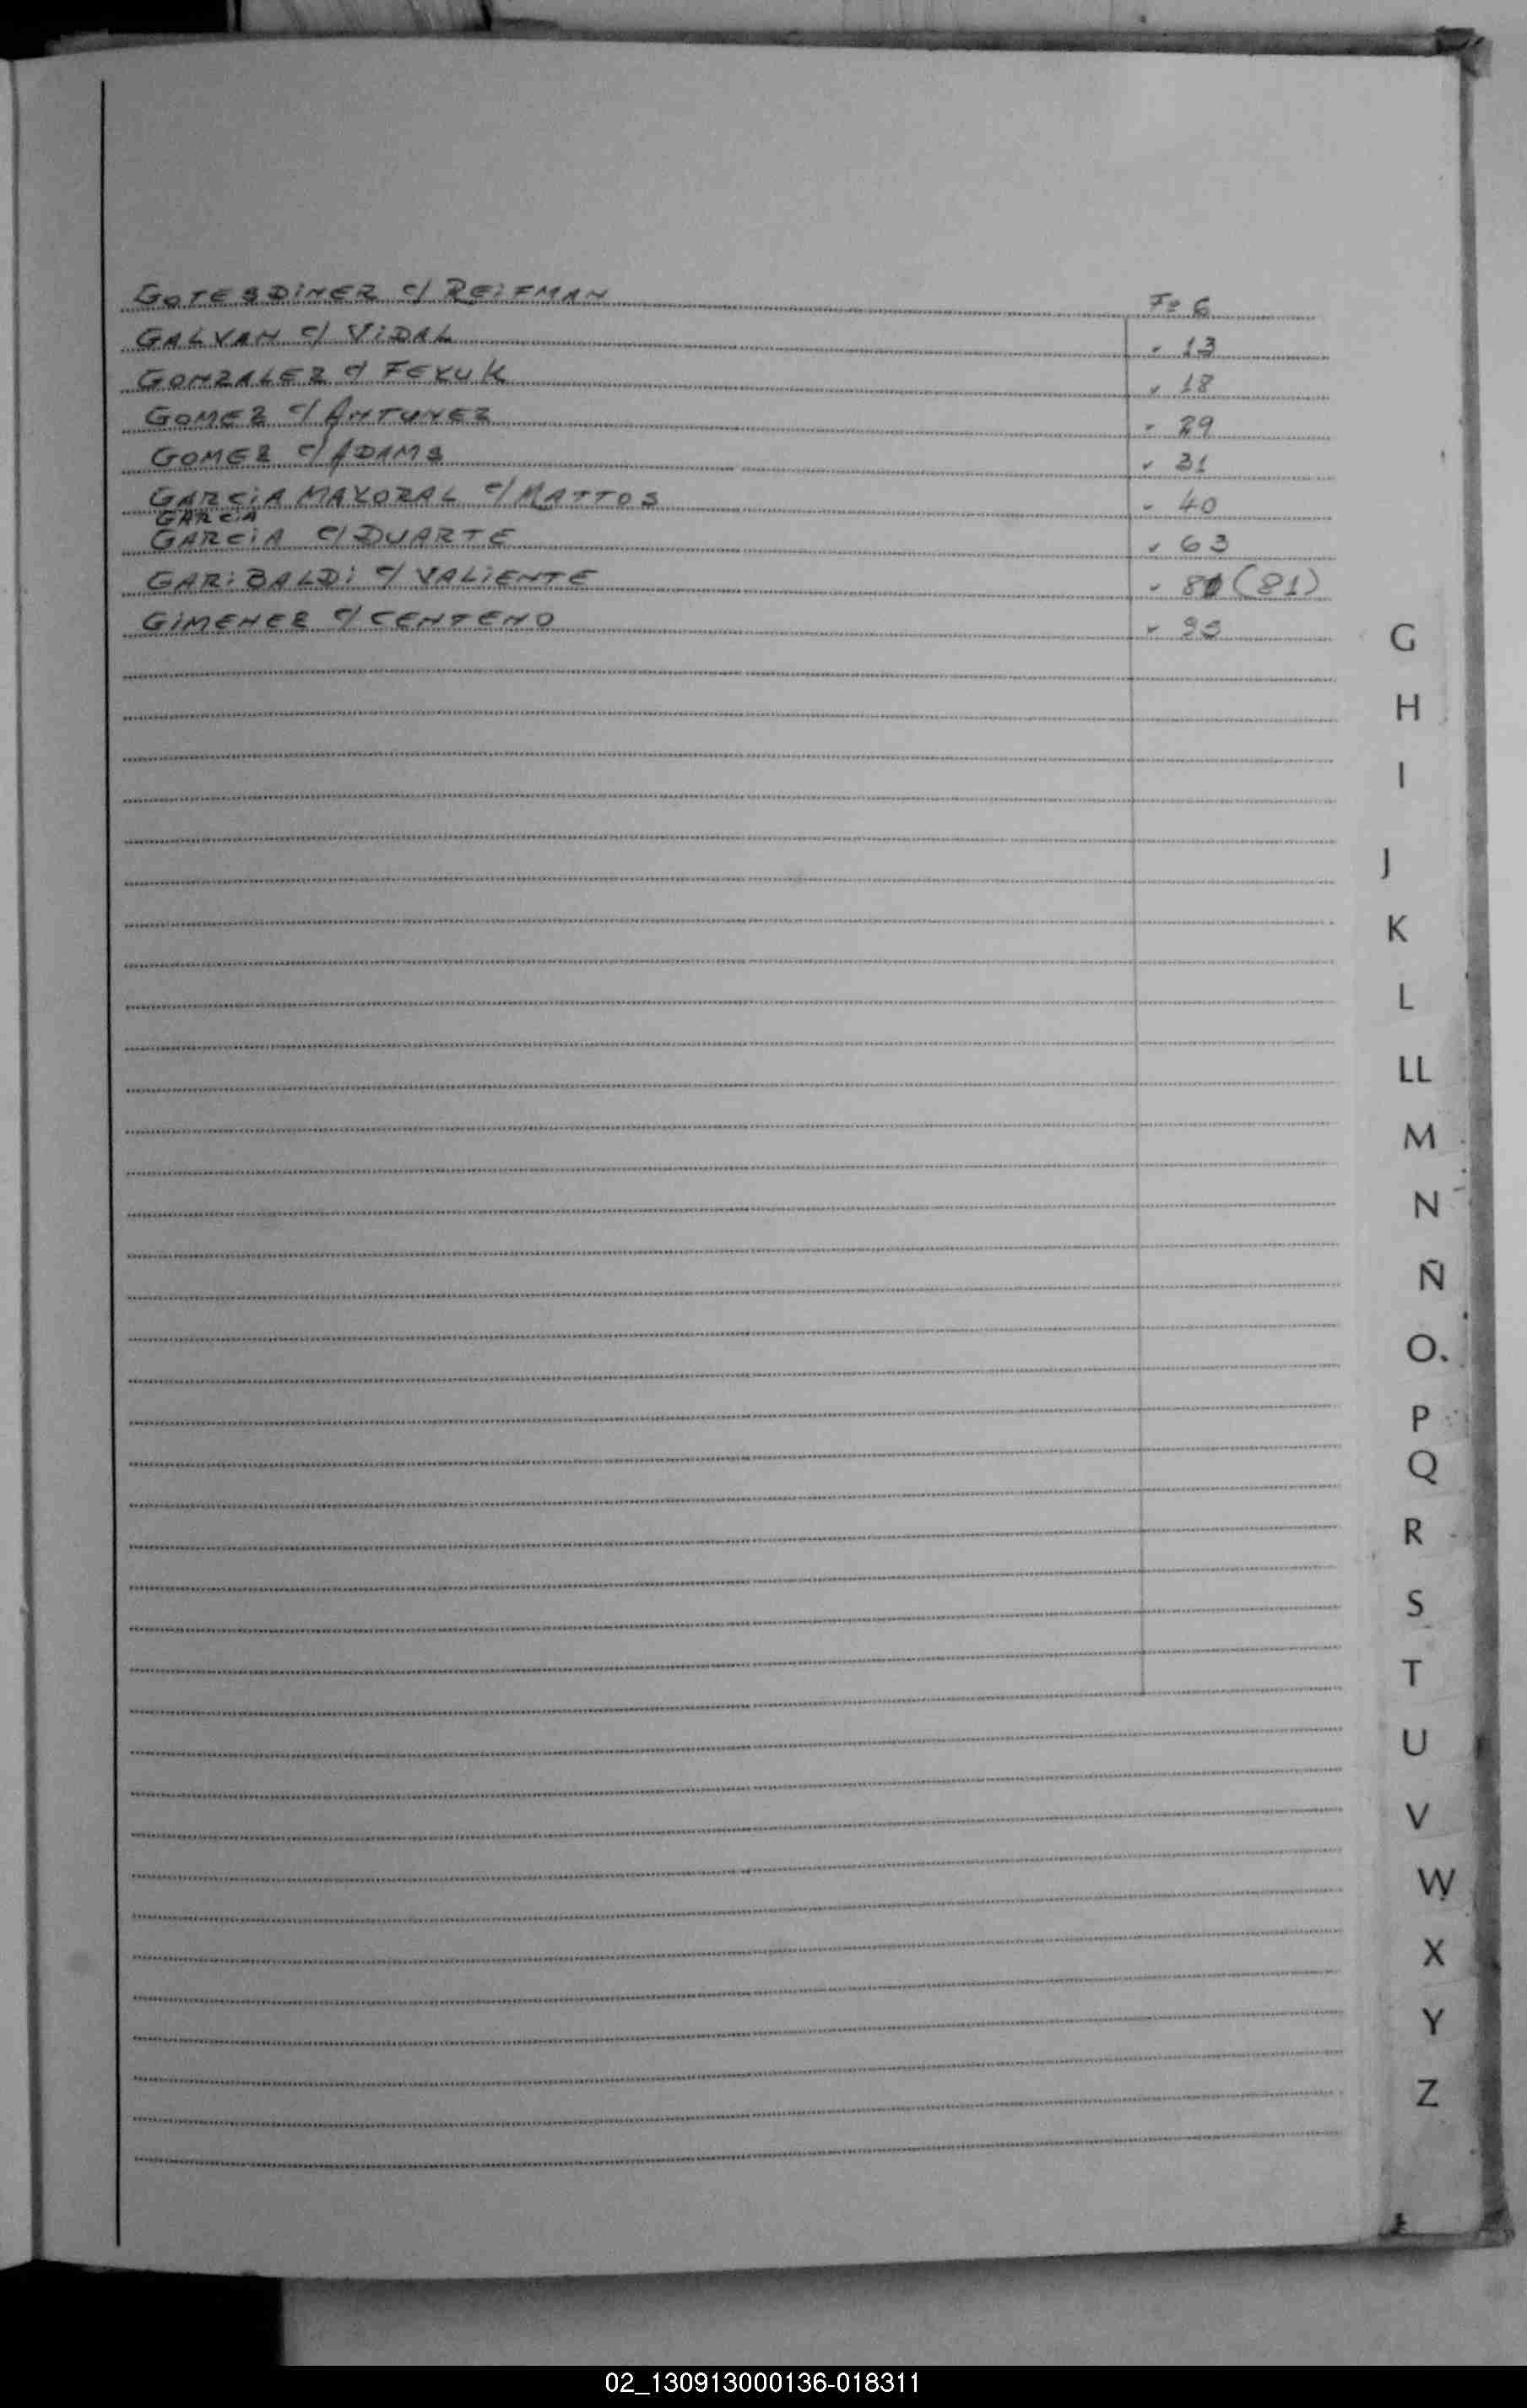 GOTESDINER c/ REIFMAN Fº 6
GALVAN c/ VIDAL " 13
GONZALEZ c/ FEKUK " 18
GOMEZ c/ ANTUNEZ " 29
GOMEZ c/ ADAMS " 31
GARCIA MAYORAL c/ MATTOS " 40
GARCIA
GARCIA c/ DUARTE " 63
GARIBALDI c/ VALIENTE " 81 (81)
GIMENEZ c/ CENTENO "
G
H
I
J
K
L
LL
M
N
Ñ
O
P
Q
R
S
T
U
V
W
X
Y
Z
02_130913000136-018311